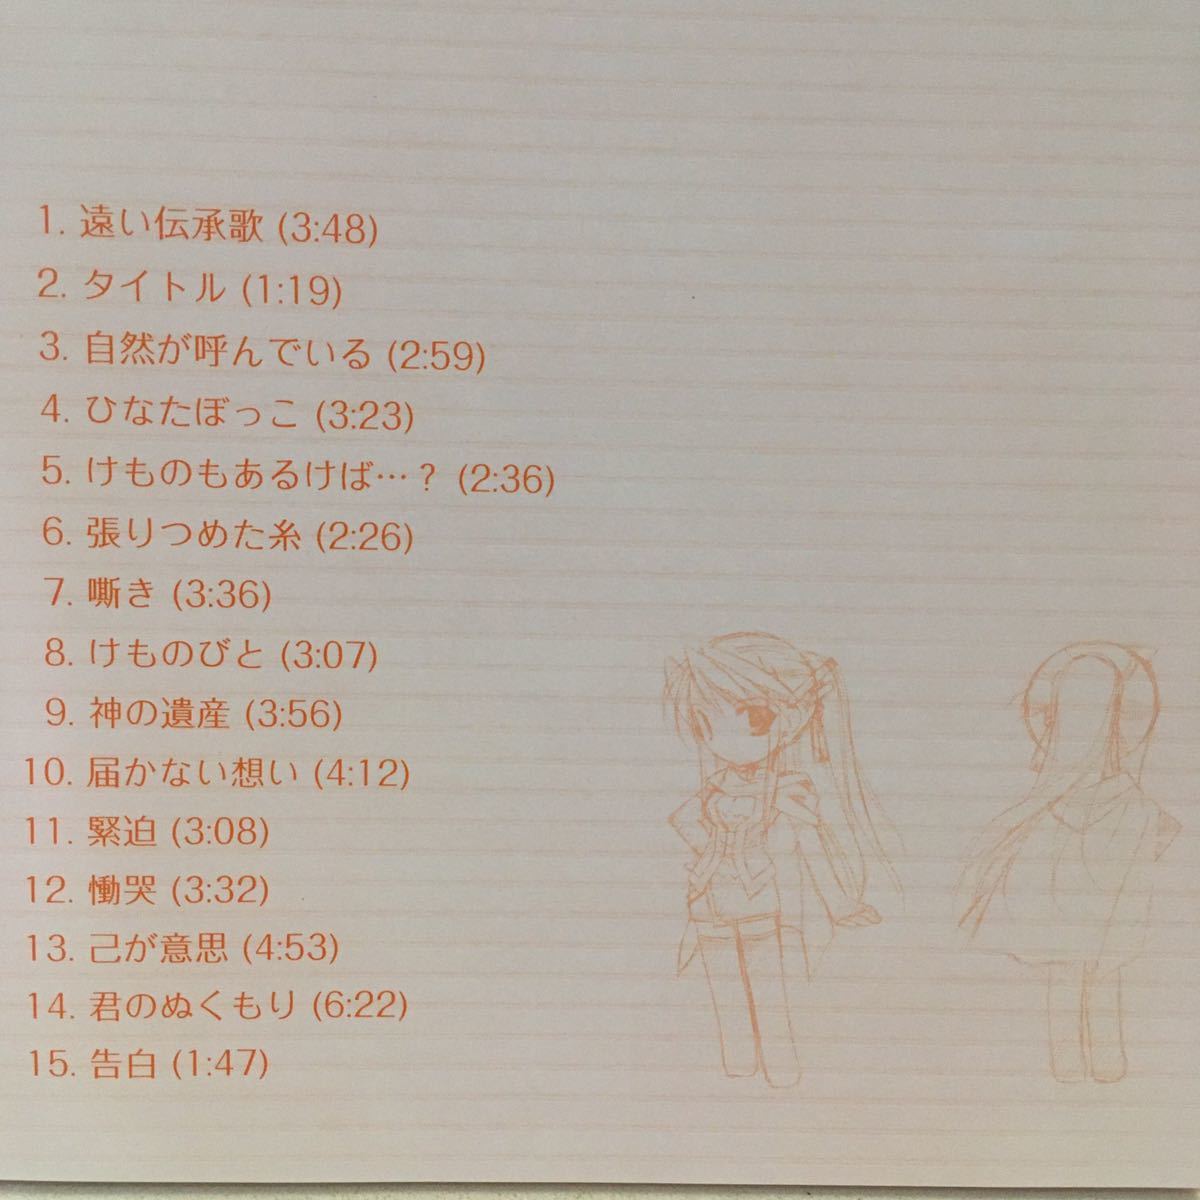 1. 遠い伝承歌 (3:48)
2. タイトル (1:19)
3. 自然が呼んでいる (2:59)
4. ひなたぼっこ (3:23)
5. けものもあるけば…？ (2:36)
6. 張りつめた糸 (2:26)
7. 嘶き (3:36)
8. けものびと (3:07)
9. 神の遺産 (3:56)
10. 届かない想い (4:12)
11. 緊迫 (3:08)
12. 慟哭 (3:32)
13. 己が意思 (4:53)
14. 君のぬくもり (6:22)
15. 告白 (1:47)